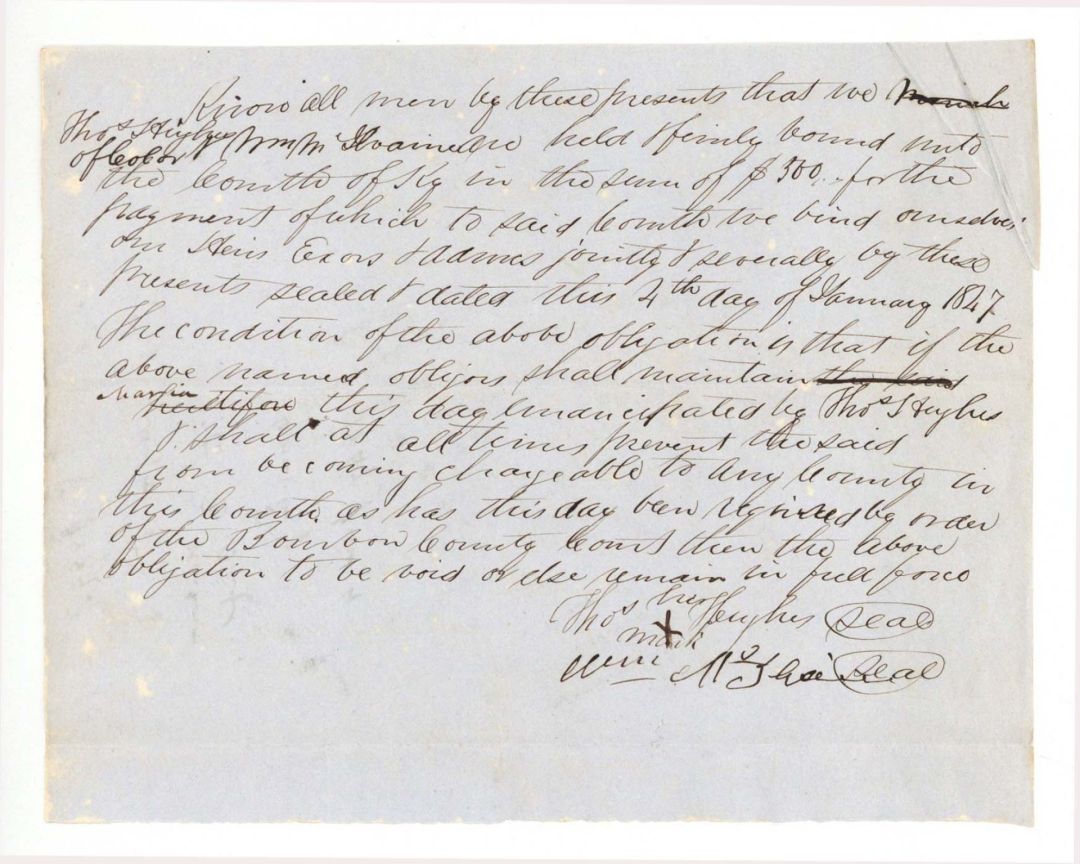 Know all men by these presents that we
Thos Hughes
of Color & Wm McIlvaine are held & firmly bound unto
the Comth of Ky in the sum of $ 300.. for the
payment of which to said Comth we bind ourselves
our Heirs Exors & Admrs jointly & severally by these
presents sealed & dated this 4th day of January 1847
The condition of the above obligation is that if the
above named obligors shall maintain the said
Maria
this day emancipated by Thos Hughes
& shall at all times prevent the said
from becoming chargeable to any County in
this Comth. as has this day been required by order
of the Bourbon County Court then the above
obligation to be void or else remain in full force
Thos his Hughes seal
mark X
Wm seal